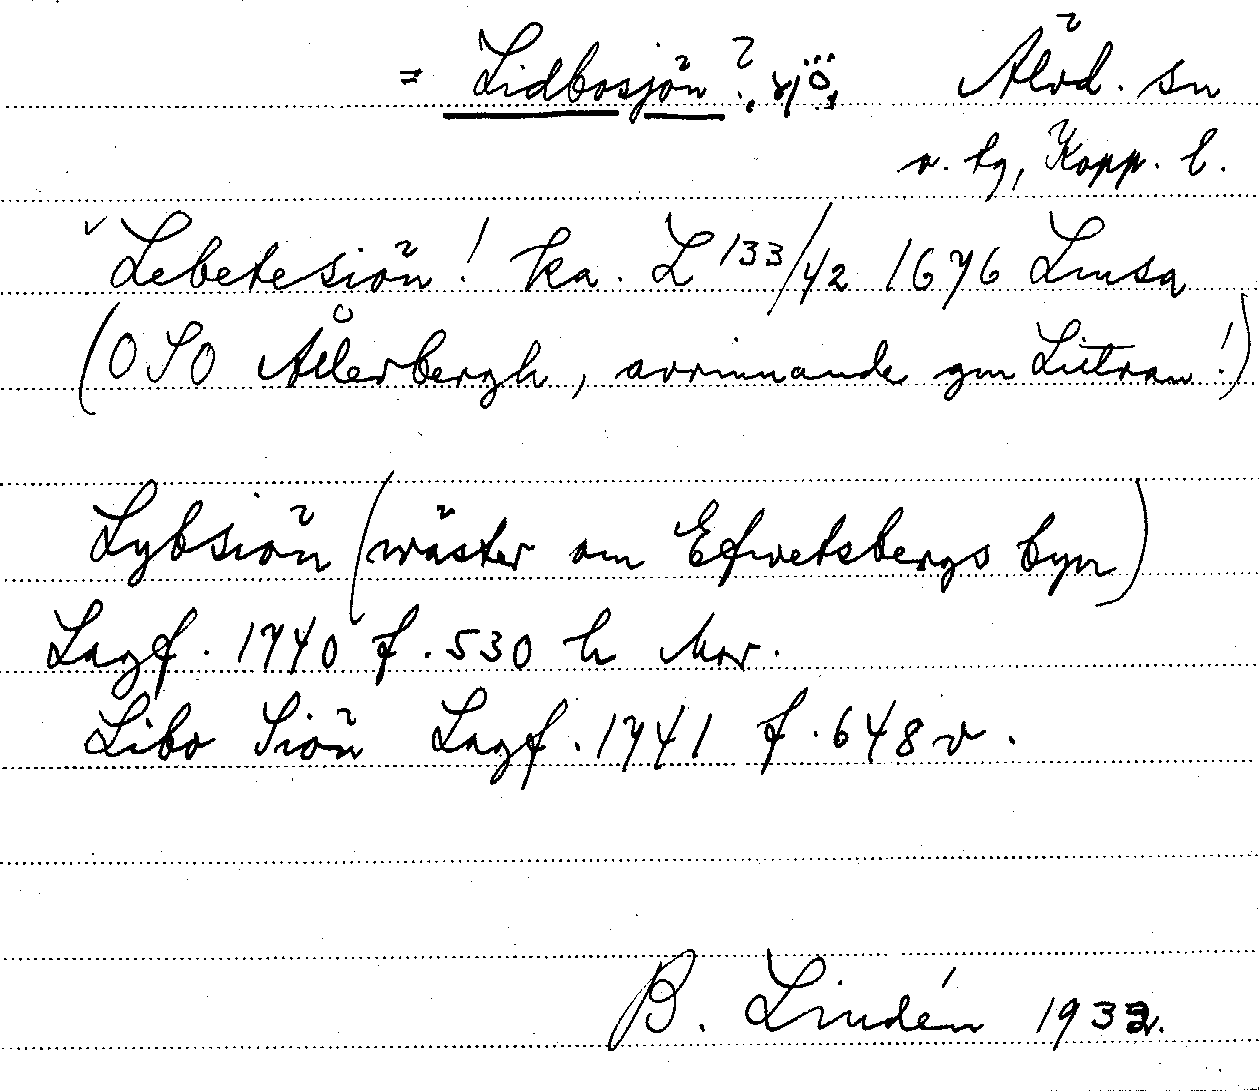 = Lidbosjön?, sjö, Älvd. sn
o. tg, Kopp. l.
Lebetesiön! ka. L 133/42 1676 Linsa
(OSO Ållerbergh, avrinnande gm Litran!)
Lybsiön (wäster om Efwetsbergs byn)
Lagf. 1740 f. 530 h Mor.
Libo Siön Lagf. 1741 f. 648 v.
B. Lindén 1932.